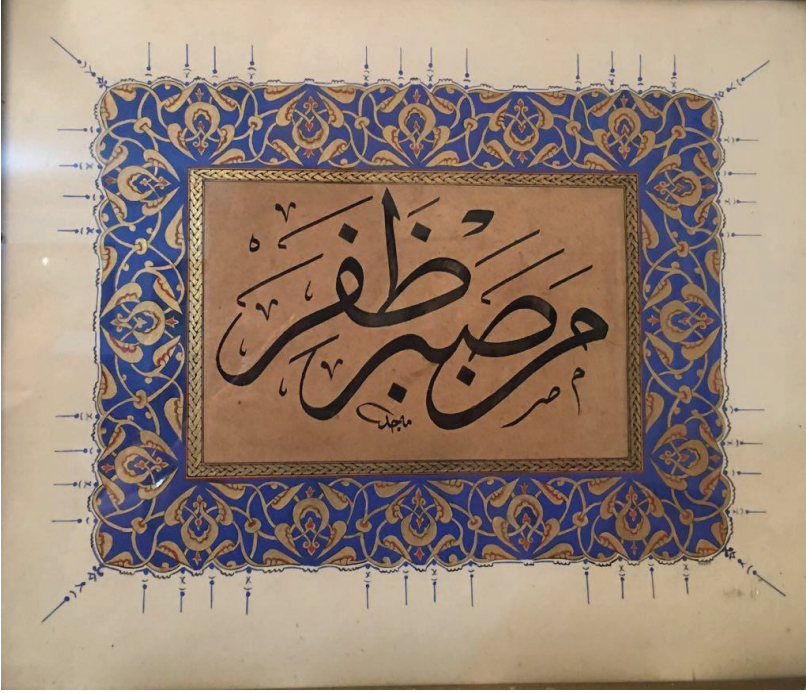 من صبر ظفر
ماجد